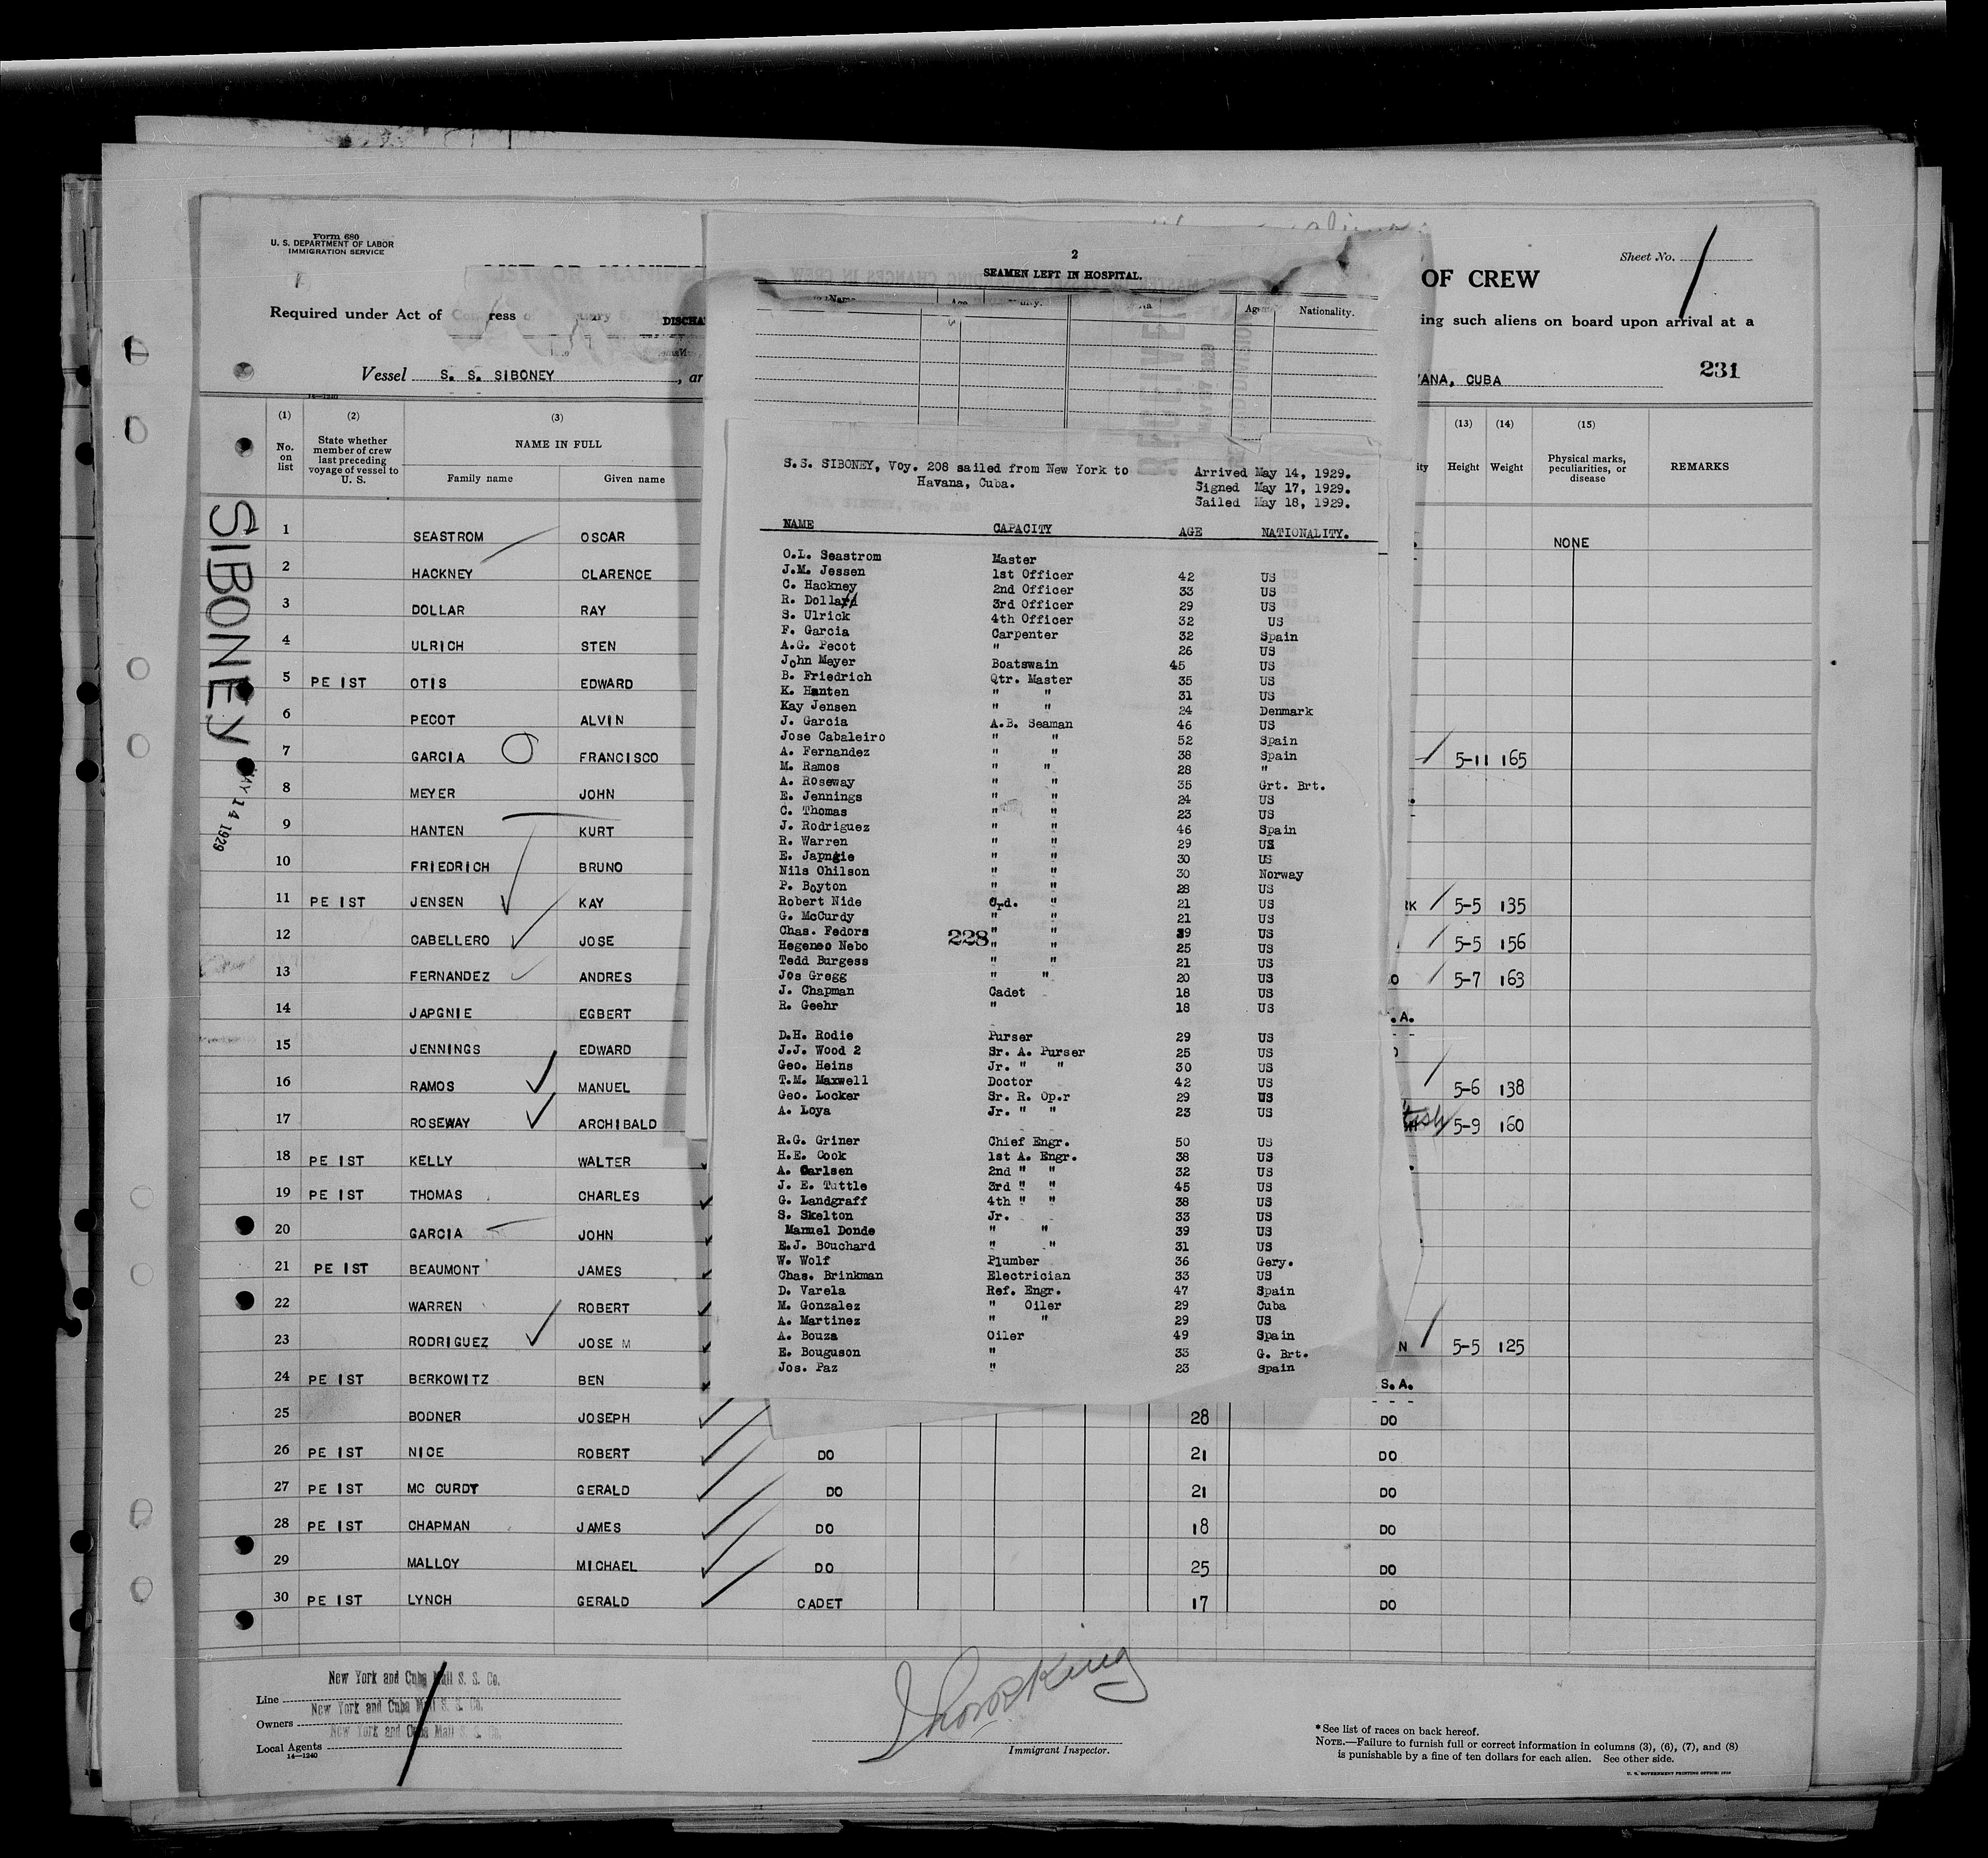 Form 680
U. S. DEPARTMENT OF LABOR
IMMIGRATION SERVICE
Required under Act of
ress
DISCHA
Vessel S. S. SIBONEY, ar
OF CREW
Sheet No. 1
ing such aliens on board upon arrival at a
ANA, CUBA
231
2
SEAMEN LEFT IN HOSPITAL.
Name Age Nationality.
(1) (2) (3) (13) (14) (15)
No. on list
State whether member of crew last preceding voyage of vessel to U. S.
NAME IN FULL
Family name Given name
Height Weight
Physical marks, peculiarities, or disease
REMARKS
SIBONEY
MAY 14 1929
1 SEASTROM OSCAR NONE
2 HACKNEY CLARENCE
3 DOLLAR RAY
4 ULRICH STEN
5 PE IST OTIS EDWARD
6 PECOT ALVIN
7 GARCIA FRANCISCO 5-11 165
8 MEYER JOHN
9 HANTEN KURT
10 FRIEDRICH BRUNO
11 PE IST JENSEN KAY RK 5-5 135
12 CABELLERO JOSE 5-5 156
13 FERNANDEZ ANDRES O 5-7 163
14 JAPGNIE EGBERT . A.
15 JENNINGS EDWARD
16 RAMOS MANUEL 5-6 138
17 ROSEWAY ARCHIBALD 5-9 160
18 PE IST KELLY WALTER
19 PE IST THOMAS CHARLES
20 GARCIA JOHN
21 PE IST BEAUMONT JAMES
22 WARREN ROBERT
23 RODRIGUEZ JOSE M N 5-5 125
24 PE IST BERKOWITZ BEN S.A.
25 BODNER JOSEPH 28 DO
26 PE IST NICE ROBERT DO 21 DO
27 PE IST MC CURDY GERALD DO 21 DO
28 PE IST CHAPMAN JAMES DO 18 DO
29 MALLOY MICHAEL DO 25 DO
30 PE IST LYNCH GERALD CADET 17 DO
S.S. SIBONEY, Voy. 208 sailed from New York to
Havana, Cuba.
Arrived May 14, 1929.
Signed May 17, 1929.
Sailed May 18, 1929.
NAME CAPACITY AGE NATIONALITY.
O.L. Seastrom Master
J.M. Jessen 1st Officer 42 US
C. Hackney 2nd Officer 33 US
R. Dollard 3rd Officer 29 US
S. Ulrick 4th Officer 32 US
F. Garcia Carpenter 32 Spain
A.G. Pecot " 26 US
John Meyer Boatswain 45 US
B. Friedrich Qtr. Master 35 US
K. Hanten " " 31 US
Kay Jensen " " 24 Denmark
J. Garcia A.B. Seaman 46 US
Jose Cabaleiro " " 52 Spain
A. Fernandez " " 38 Spain
M. Ramos " " 28 "
A. Roseway " " 35 Grt. Brt.
E. Jennings " " 24 US
C. Thomas " " 23 US
J. Rodriguez " " 46 Spain
R. Warren " " 29 US
E. Japngie " " 30 US
Nils Ohilson " " 30 Norway
P. Boyton " " 28 US
Robert Nide Ord. " 21 US
G. McCurdy " " 21 US
Chas. Fedors " " 39 US
228
Hegeneo Nebo " " 25 US
Tedd Burgess " " 21 US
Jos Gregg " " 20 US
J. Chapman Cadet 18 US
R. Geehr " 18 US
D.H. Rodie Purser 29 US
J.J. Wood 2 Sr. A. Purser 25 US
Geo. Heins Jr. " " 30 US
T.M. Maxwell Doctor 42 US
Geo. Locker Sr. R. Op.r 29 US
A. Loya Jr. " " 23 US
R.G. Griner Chief Engr. 50 US
H.E. Cook 1st A. Engr. 38 US
A. Carlsen 2nd " " 32 US
J. E. Tuttle 3rd " " 45 US
G. Landgraff 4th " " 38 US
S. Skelton Jr. 33 US
Manuel Donde " " 39 US
E.J. Bouchard " " 31 US
W. Wolf Plumber 36 Gery.
Chas. Brinkman Electrician 33 US
D. Varela Ref. Engr. 47 Spain
M. Gonzalez " Oiler 29 Cuba
A. Martinez " " 29 US
A. Bouza Oiler 49 Spain
E. Bouguson " 33 G. Brt.
Jos. Paz " 23 Spain
Line New York and Cuba Mail S. S. Co.
Owners New York and Cuba Mail S. S. Co.
Local Agents New York and Cuba Mail S. S. Co.
14—1240
Immigrant Inspector.
* See list of races on back hereof.
NOTE.—Failure to furnish full or correct information in columns (3), (6), (7), and (8)
is punishable by a fine of ten dollars for each alien. See other side.